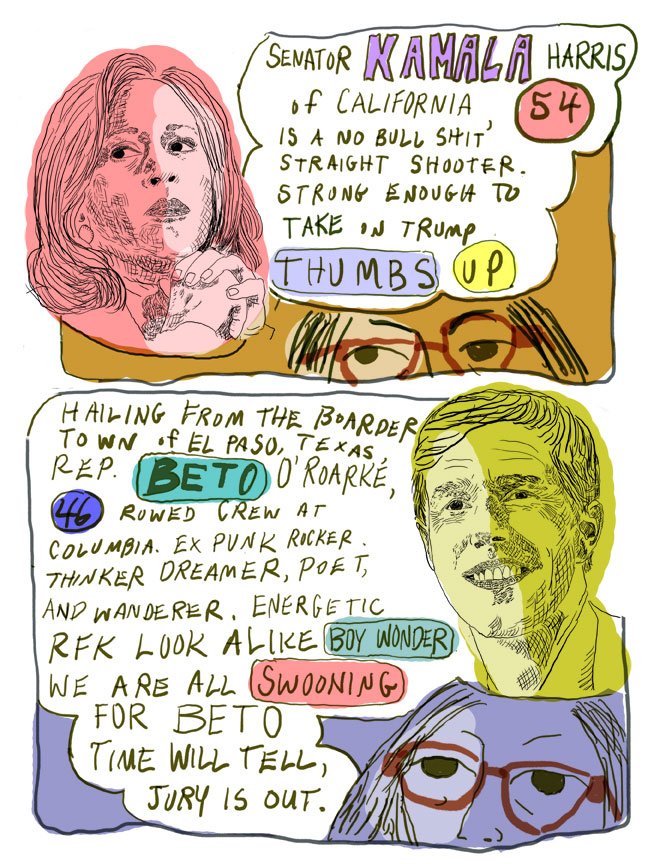 SENATOR KAMALA HARRIS
of CALIFORNIA, 54
IS A NO BULL SHIT
STRAIGHT SHOOTER.
STRONG ENOUGH TO
TAKE ON TRUMP
THUMBS UP
HAILING FROM THE BOARDER
TOWN of EL PASO, TEXAS,
REP. BETO O'ROARKE,
46 ROWED CREW AT
COLUMBIA. EX PUNK ROCKER.
THINKER DREAMER, POET,
AND WANDERER. ENERGETIC
RFK LOOK ALIKE BOY WONDER
WE ARE ALL SWOONING
FOR BETO
TIME WILL TELL,
JURY IS OUT.